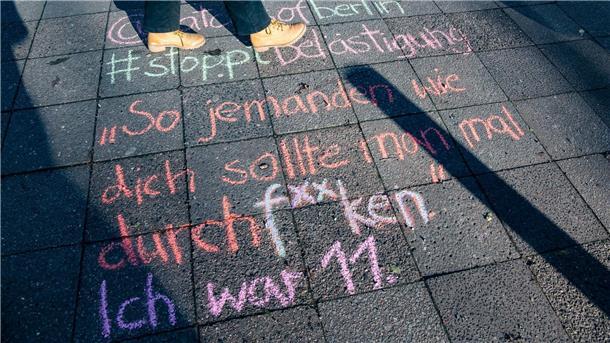 of berlin
#stopptBelästigung
„So jemanden wie
dich sollte man mal
durchf**ken."
Ich war 11.